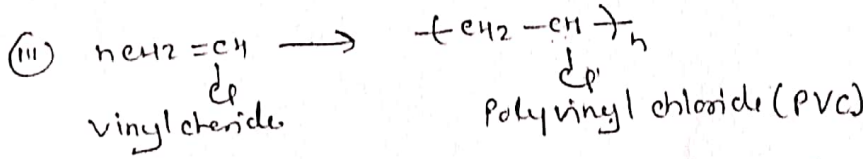 (iii) nCH2 = CH ⟶ -(-CH2 - CH-)-n
Cl Cl
Vinyl cheride Polyvinyl chloride (PVC)